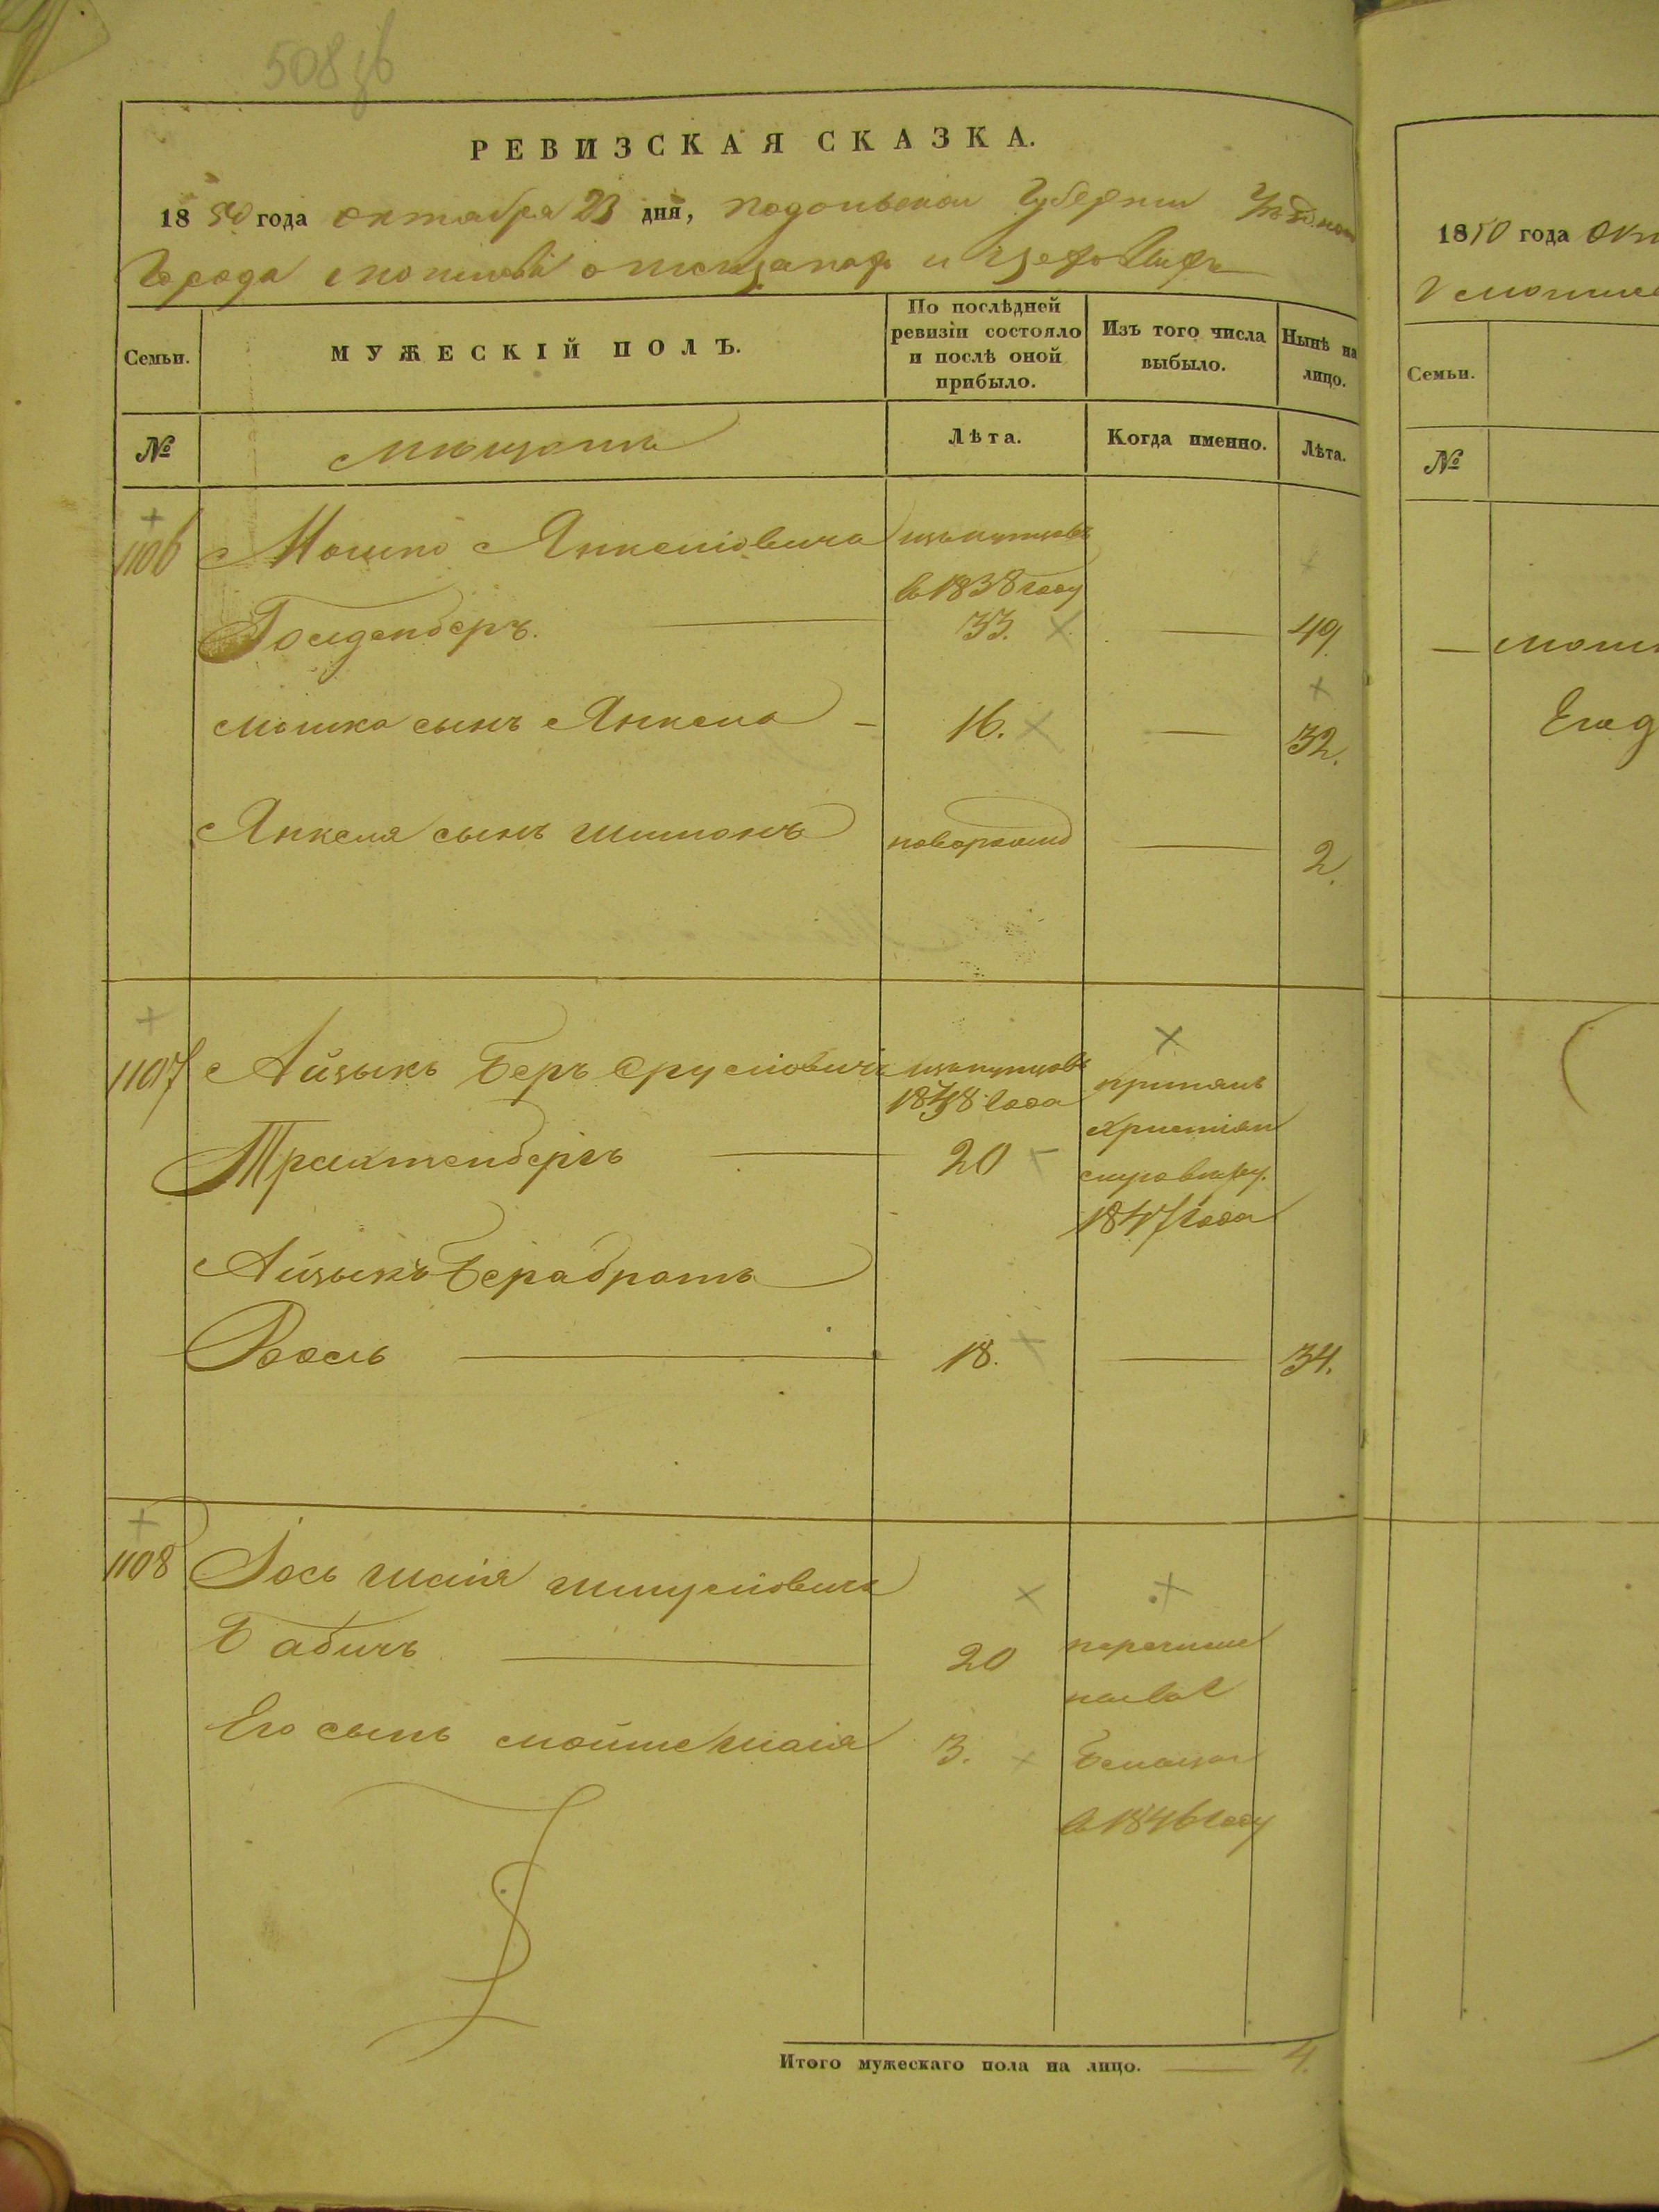 508 зв
РЕВИЗСКАЯ СКАЗКА.
1850 года октября 23 дня, Подольской Губернии Уѣзднаго
Города Могилева о мещанах и Цеховых
Семьи.
МУЖЕСКІЙ ПОЛЪ.
По послѣдней
ревизіи состояло
и послѣ оной
прибыло.
Изъ того числа
выбыло.
Нынѣ на
лицо.
№
Мещане
Лѣта.
Когда именно.
Лѣта.
1106 Мошко Янкеліовича изъ купцовъ
в 1838 году
Гольденберъ. 33. 49.
Мошка сынъ Янкель 16. 32.
Янкеля сынъ Шимонъ новорожд 2.
1107 Айзыкъ Беръ Сруліовичъ изъ купцовъ
принялъ
1838 года
христіан
Трахтенбергъ 20
1847 года
Айзыкъ Бера братъ
18. 34.
1108 Іось Шаія Шмуліовича
Бабичъ 20
перечисле
Его сынъ Мойше Шаія 3.
в 1846 году
Итого мужескаго пола на лицо. 4.
1850 года Окт
Семьи.
№
Мошк
Его д